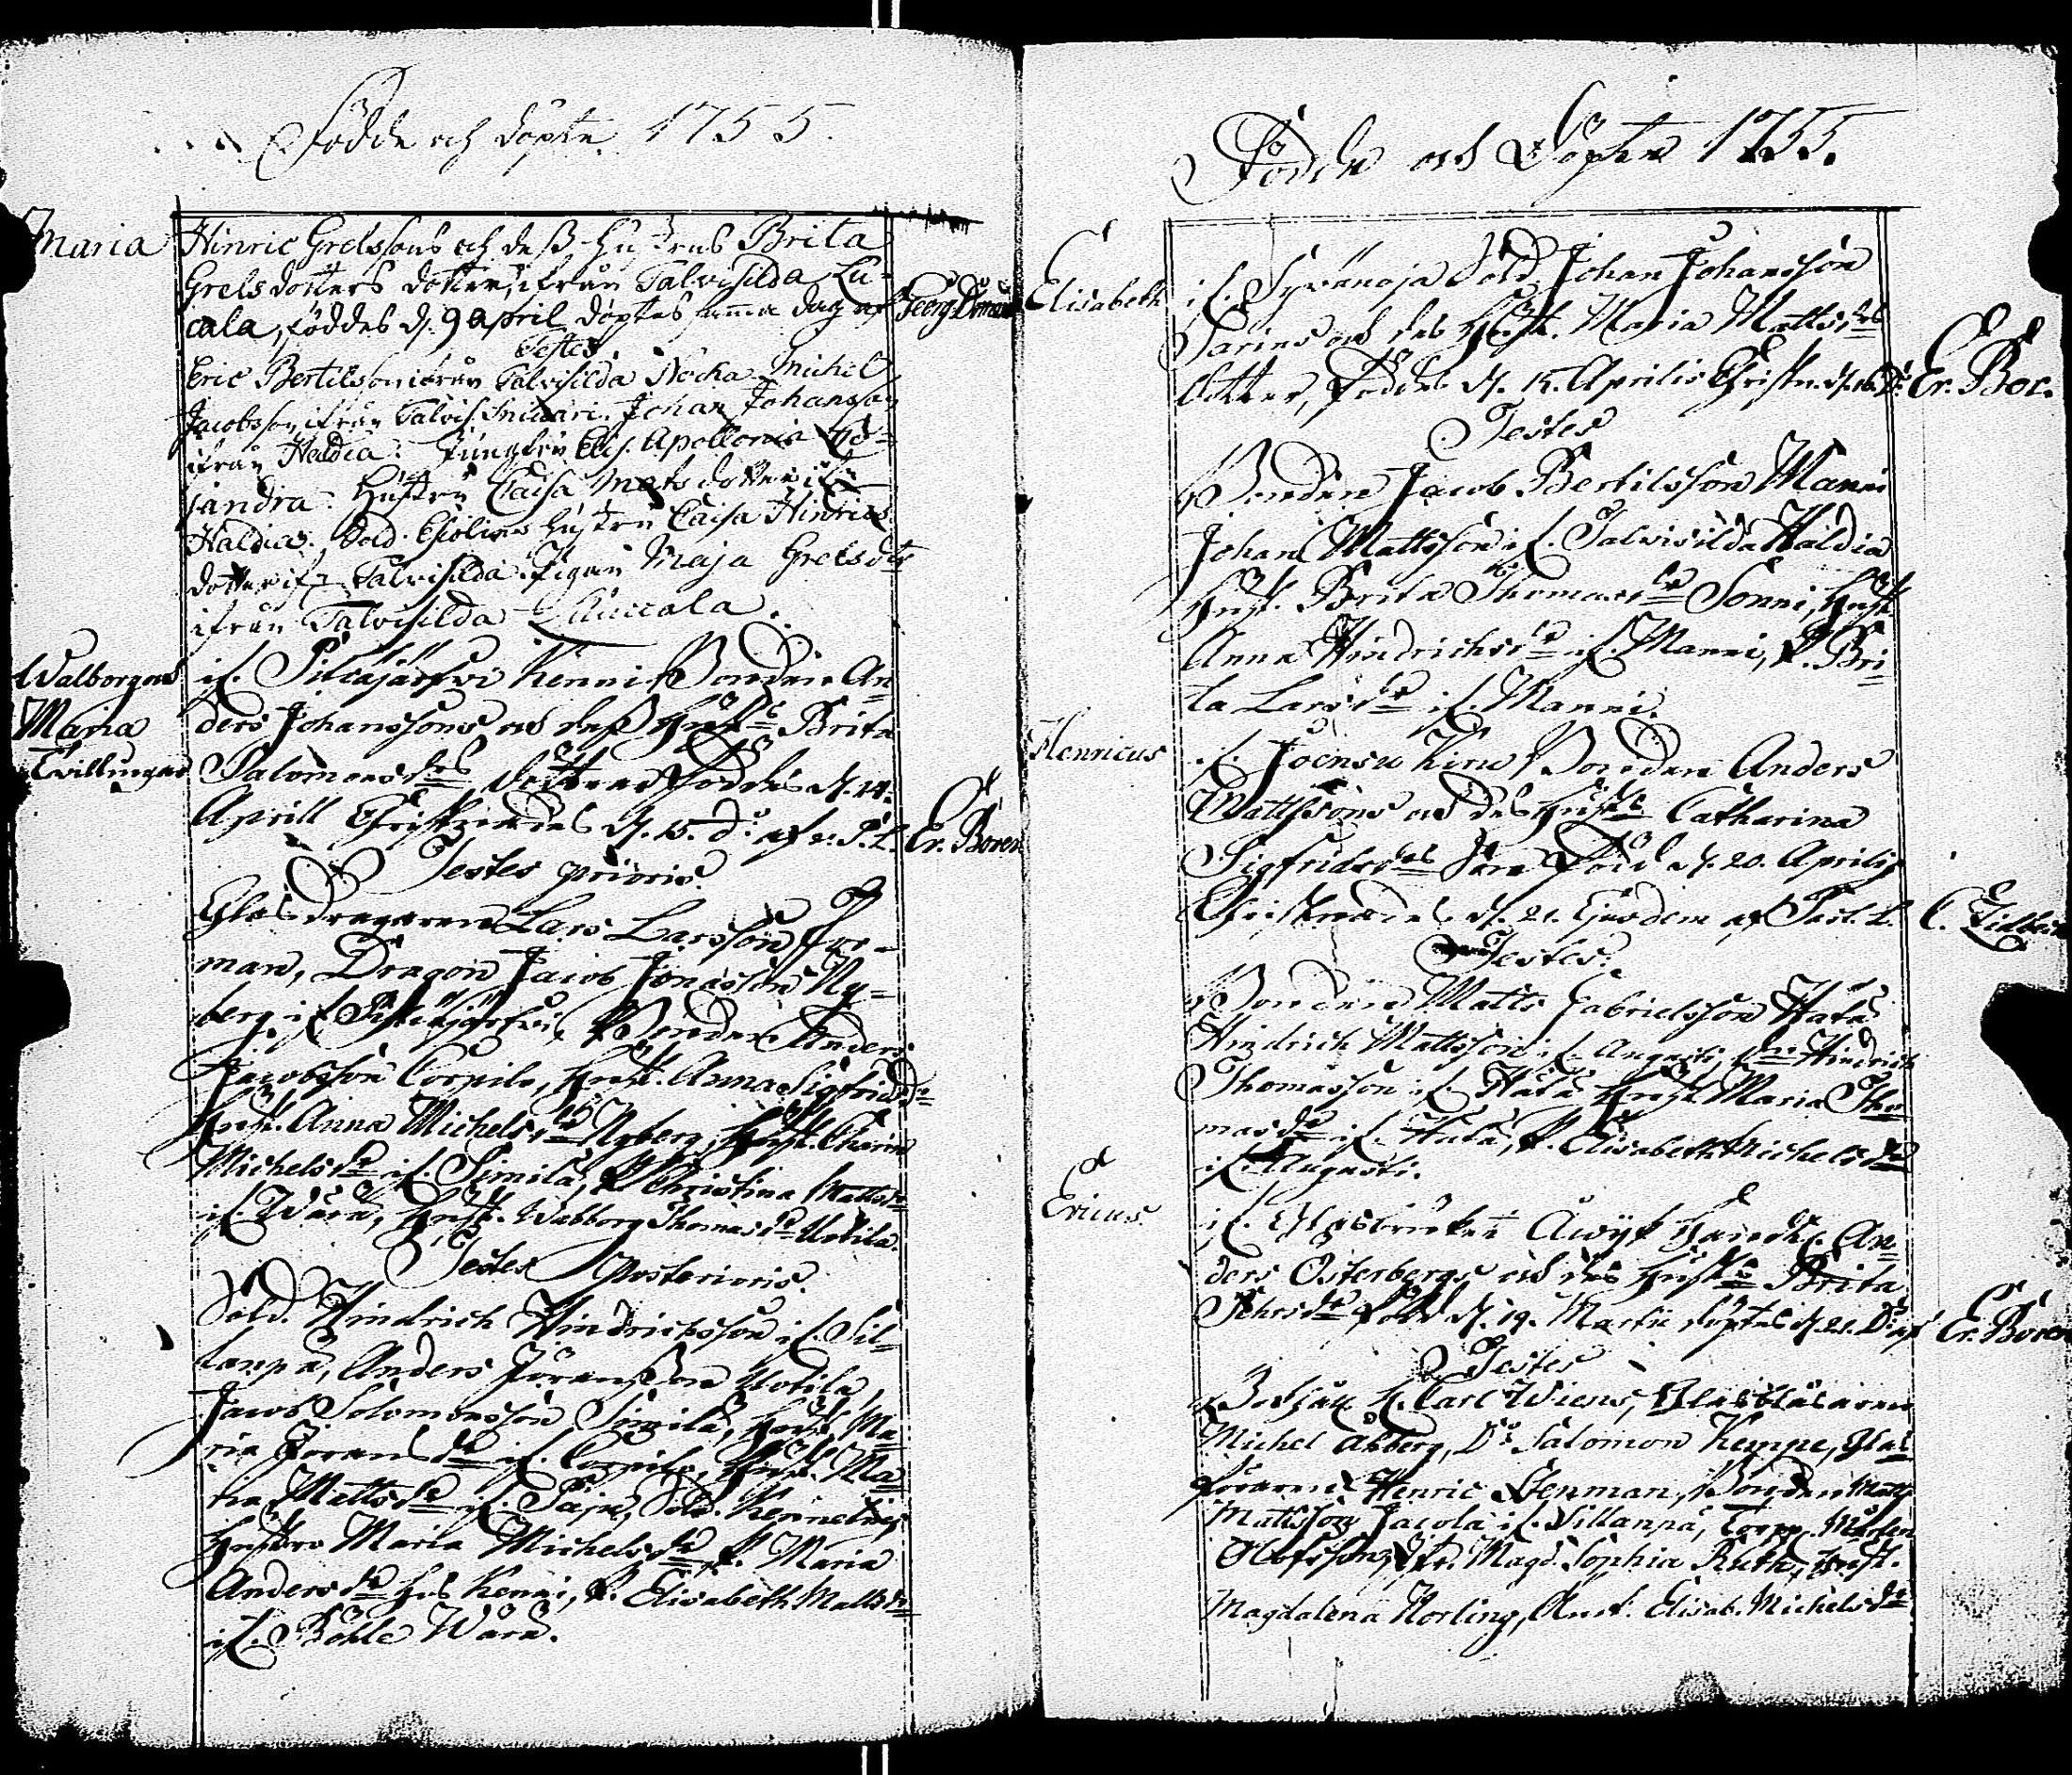 Födde och döpte 1755.
Maria
Hinric Grelssons och dess hustrus Brita
Grelsdotters dotter, ifrån Talvisilda Lu-
cala, föddes d. 9 april döptes samma dag af Georg
Testes
Eric Bertilsson ifrån Talvisilda Nocka Michel
Jacobsson ifrån Talvis. Johan Johansson
ifrån Haldia. Jungfru Apollonia
jandra. Hustru Caisa Mats dotter if.
Haldia. Sold. hustru Caisa Hinrics
dotter ifr. Talvisilda. Pigan Maja Grelsdtr
ifrån Talvisilda Luccala.
Walborg och
Maria
Tvillingar
if. Pitkäjärfvi Kenni Bonden An-
ders Johanssons och dess hustrs Brita
Salomonsdrs döttrar föddes d. 14.
Aprill Christnades d. 15. Do af v. P. L. Er. Boren
Testes prioris.
Glasdragaren Lars Larsson
man, Dragon Jacob Jonasson Ny-
berg if. Pitkäjärfvi, Bonden Anders
Jacobsson Corpila, Hust. Anna Sigfridsdr
Hust. Anna Michelsdr Nyberg, Hust. Carin
Michelsdr if. Simila, P. Christina Mattsdr
if. Wara, Hust. Walborg Thomasdr Uotila.
Testes posterioris.
Sold. Hindrich Hindrichsson if. Sil-
lanpä, Anders Jöransson Uotila,
Jacob Solomonsson Simila, Hust. Ma-
ria Joransdr if. Corpila, Hust. Ma-
ria Mattsdr if. Paju, Sold.
Hustru Maria Michelsdr P. Maria
Andersdr hos Kenni, P. Elisabeth Mattsdr
if. Böhle Wara.
Födde och Döpte 1755.
Elisabeth
if. Syvänoja Sold. Johan Johansson
och des Hust. Maria Mattsdrs
dotter, Födde d. 15. Aprilis Christn. d. 16. Do Er. Bor.
Testes
Bonden Jacob Bertilsson Manni
Johan Mattsson if. Talvisilda Haldia
Hust. Brita Thomasdr Sonni, Hust.
Anna Hindrichsdr if. Manni, P. Bri-
ta Larsdr if. Manni.
Henricus
if. Joensu Kiru Bonden Anders
Mattssons och des Hustrs Catharina
Sigfridsdrs Son Född d. 20. Aprilis
Christnades d. 21. Ejusdem af Past. L.
Testes.
Bonden Matts Gabrielsson Hata
Hindrich Mattsson if. Augusti, Hindrich
Thomasson if. Hata Hust. Maria Tho-
masdr if. Hata, P. Elisabeth Michelsdr
if. Augusti.
Ericus.
if. Glasbruket Åwijk An-
ders Österbergs och des Hustrs Brita
Född d. 19. Martii döptes d. 21. Do af Er. Boren
Testes
H. Carl Wiens, Glasblåsaren
Michel Åhberg, Do Salomon Kempe, Glas
föraren Henric Stenman, Bonden Matts
Mattsson Jacola if. Sillanpä, Torp. Mårten
Olofsson, Fr. Magd. Sophia Ruth, Hust.
Magdalena Norling, Hust. Elisab. Michelsdr